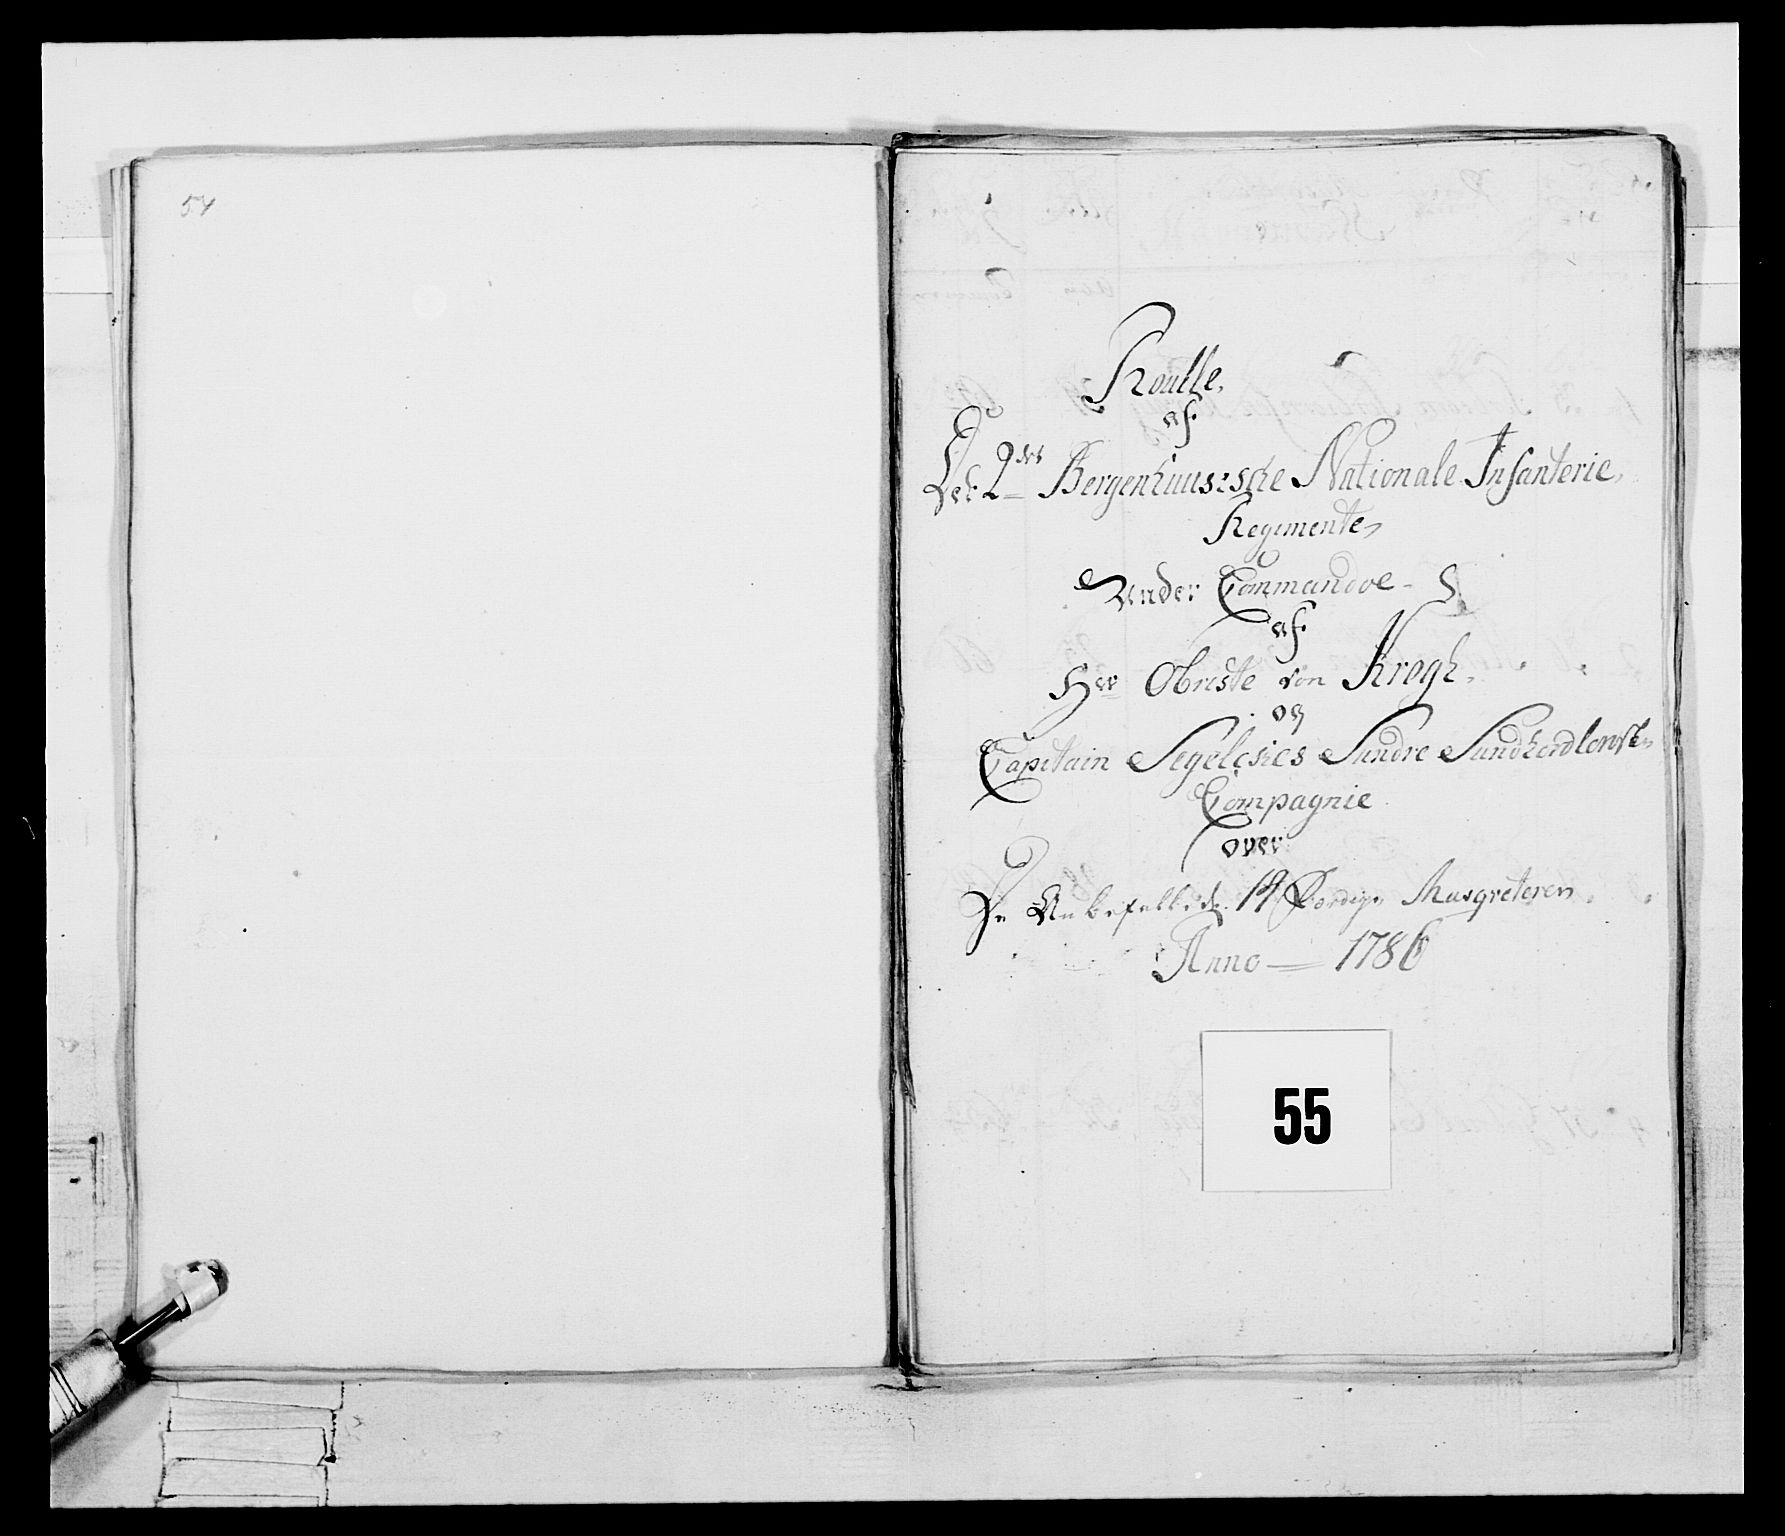 54
Roulle,
af
Det 2det Bergenhuusische Nationale Infanterie,
Regimente,
Under Commandoe
af
Hr Obriste von Krogh.
og
Capitain Segelckes Søndre Sundhordlenske
Compagnie
over
De Anbefallede 14 Færdige Musqveterer
Anno 1786
55